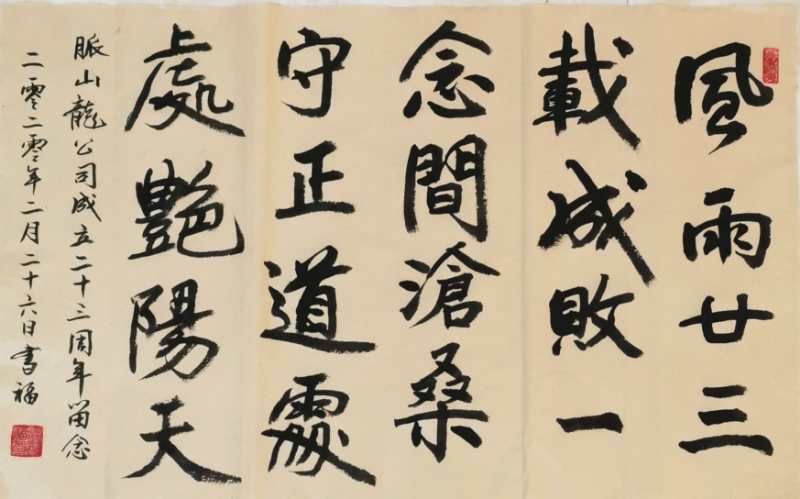 風雨廿三
載成敗一
念間滄桑
守正道處
處艷陽天
脈山龍公司成立二十三周年留念
二零二零年二月二十六日書福